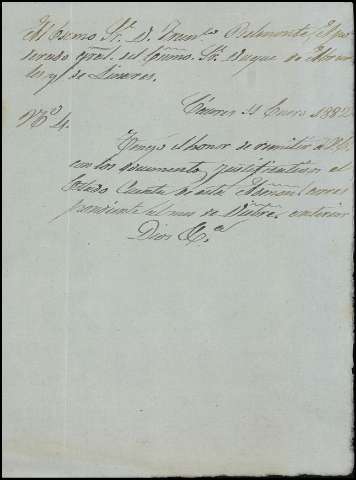 Al Excmo Sr. D. Franco Belmonte, Apo
derado gral. del Excmo. Sr. Duque de Abran
tes y de Linares.
Cáceres 11 Enero 1882
No 4.
Tengo el honor de remitir a V.E.
con los documentos justificativos el
Estado Cuenta de esta Admon. corres
pondiente al mes de Dbre. anterior
Dios &a